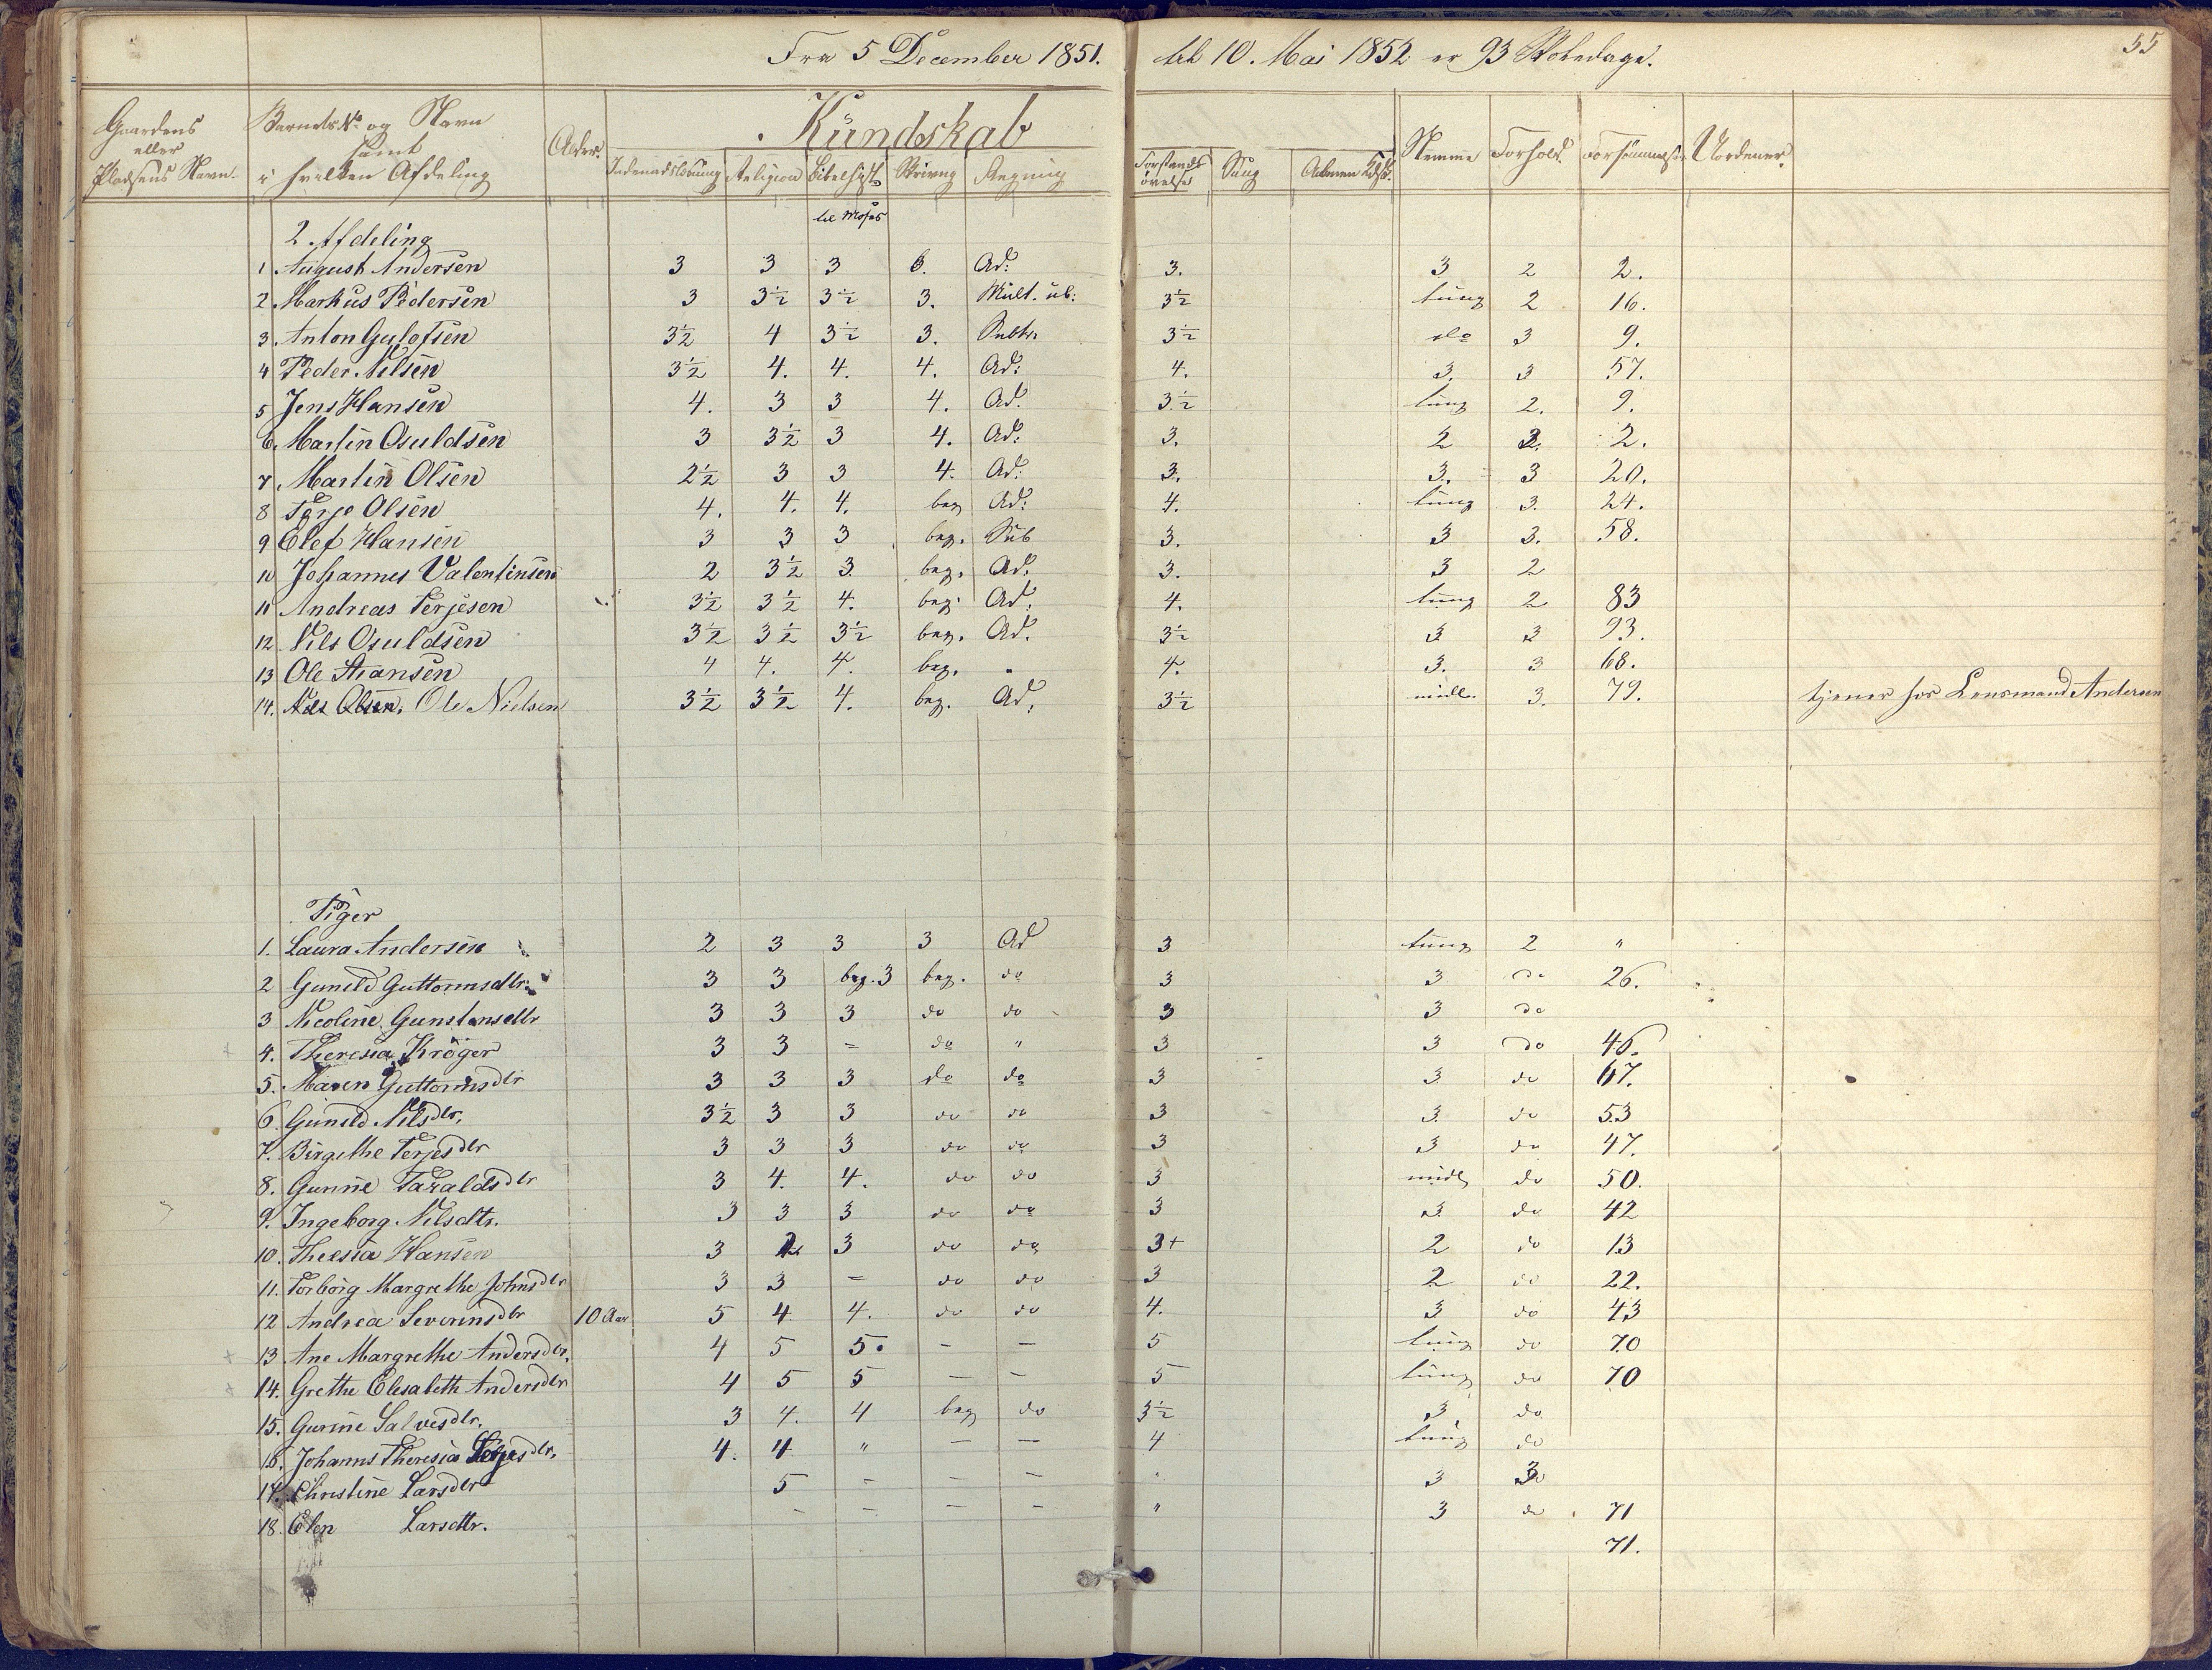 Fra 5 December 1851. til 10. Mai 1852 er 93 Skoledage. 55
Gaardens eller Pladsens Navn. Barnets No og Navn samt i hvilken Afdeling Alder. Kundskab Stemme Forhold. Forsømmelser Uordener
Indenadslæsning Religion Bibelhist. Skrivng Regning Forstands øvelse Sang Almen Kdsk.
til Moses
2. Afdeling
1 August Andersen 3 3 3 3. Ad: 3. 3 2 2.
2 Markus Pedersen 3 3½ 3½ 3. Mult. ub: 3½ tung 2 16.
3 Anton Gulofsen 3½ 4 3½ 3. Subtr. 3½ do 3 9.
4 Peder Nilsen 3½ 4. 4. 4. Ad: 4. 3. 3 57.
5 Jens Hansen 4. 3 3 4. Ad. 3½ tung 2. 9.
6. Martin Osuldsen 3 3½ 3 4. Ad: 3. 2 2. 2.
7 Martin Olsen 2½ 3 3 4. Ad: 3. 3. 3 20.
8 Terje Olsen 4. 4. 4. beg Ad: 4. tung 3. 24.
9 Elef Hansen 3 3 3 beg. Sub 3. 3 3. 58.
10 Johannes Valentinsen 2 3½ 3. beg. Ad. 3. 3 2
11 Andreas Terjesen 3½ 3½ 4. beg. Ad. 4. tung 2 83
12 Nils Osuldsen 3½ 3½ 3½ beg. Ad. 3½ 3 3 93.
13 Ole Stiansen 4 4. 4. beg. " 4. 3. 3 68.
14. Nils Olsen. Ole Nielsen 3½ 3½ 4. beg. Ad. 3½ midl. 3. 79. tjener hos Lensmand Andersen
Piger
1. Laura Andersen 2 3 3 3 Ad 3 tung 2 "
2 Gunild Guttormsdtr. 3 3 beg. 3 beg. do 3 3 do 26.
3 Nicoline Gunstensdtr 3 3 3 do do 3 3 do
4. Theresia Krøger 3 3 = do " 3 3 do 46.
5. Maren Guttormsdtr 3 3 3 do do 3 3 do 67.
6. Gunild Nilsdtr. 3½ 3 3 do do 3 3. do 53
7. Birgithe Terjesdtr 3 3 3 do do 3 3 do 47.
8. Gunne Taraldsdtr 3 4. 4. do do 3 midl do 50.
9. Ingeborg Nilsdtr. 3 3 3 do do 3 3 do 42
10. Theresia Hansen 3 2 3 do do 3+ 2 do 13
11. Torborg Margrethe Johnsdtr 3 3 = do do 3 2 do 22.
12 Andrea Severinsdtr 10 Aar 5 4 4. do do 4. 3 do 43
13 Ane Margrethe Andersdtr. 4 5 5. - - 5 tung do 70
14. Grethe Elisabeth Andersdtr 4 5 5 - - 5 tung do 70
15. Gurine Salvesdtr. 3 4. 4 beg do 3½ 3 do
16. Johanne Theresia Terjesdtr. 4. 4 " - - 4 tung do
17. Christine Larsdtr 5 - - - " 3 3
18. Elen Larsdtr. - - - - " 3 do 71
71.